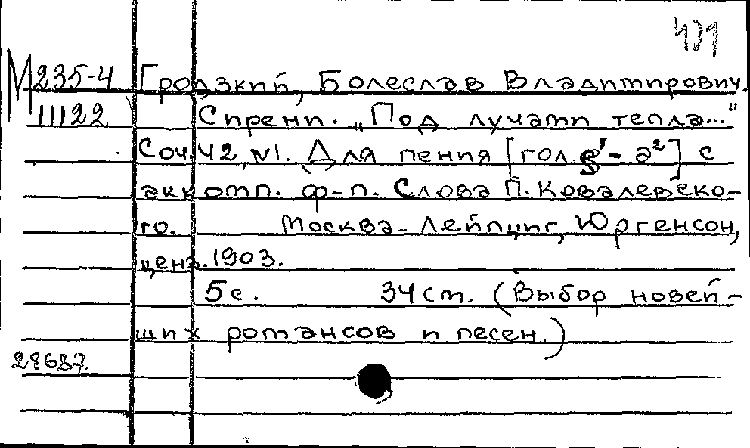 401
М 235-4 Гродзкий, Болеслав Владимирович.
11122 Сирени. „Под лучами тепла..."
Соч. 42, №1. Для пения [гол. - a²] с
акком. ф-п. Слова П. Ковалевско-
го. Москва-Лейпциг, Юргенсон,
ценз. 1903.
5 с. 34 см. (Выбор новей-
ших романсов и песен.)